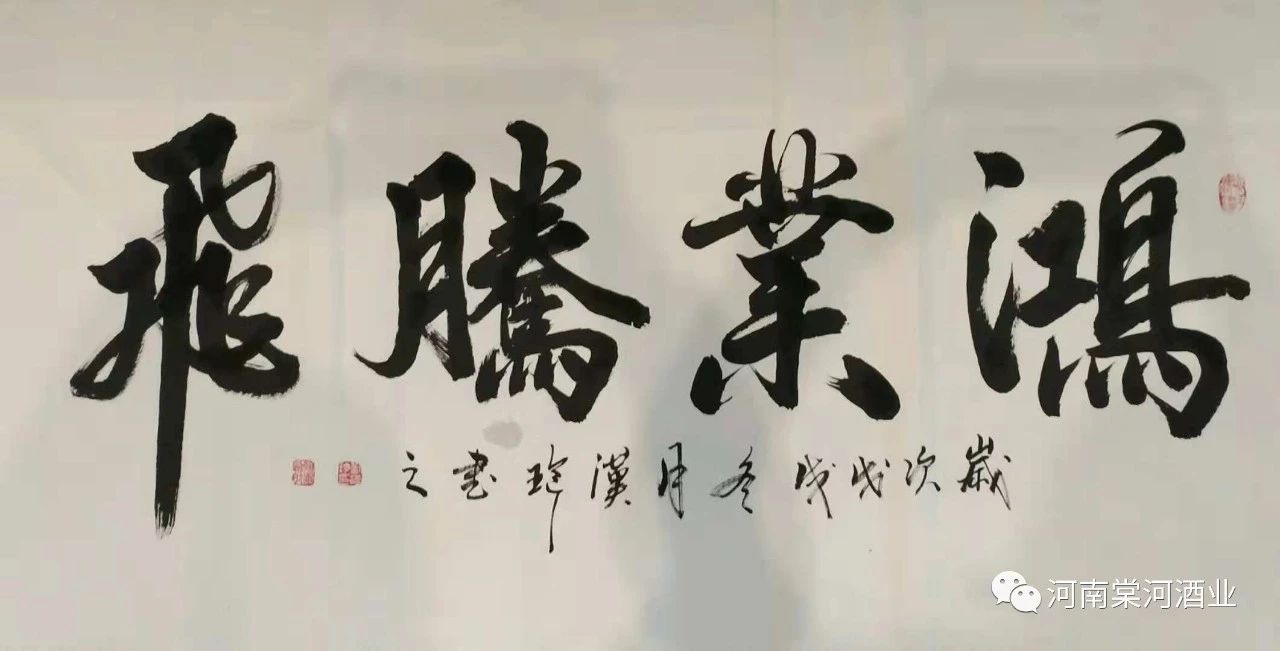 鴻業騰飛
歲次戊戌冬月漢瑰書之
河南棠河酒业